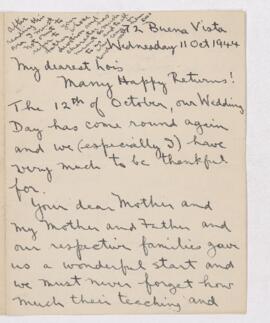 72 Buena Vista
Wednesday 11 Oct 1944
My dearest Lois
Many Happy Returns!
The 12th of October, our Wedding
Day has come round again
and we (especially I) have
very much to be thankful
for.
Your dear Mother and
my Mother and Father and
our respective families gave
us a wonderful start and
we must never forget how
much their teaching and